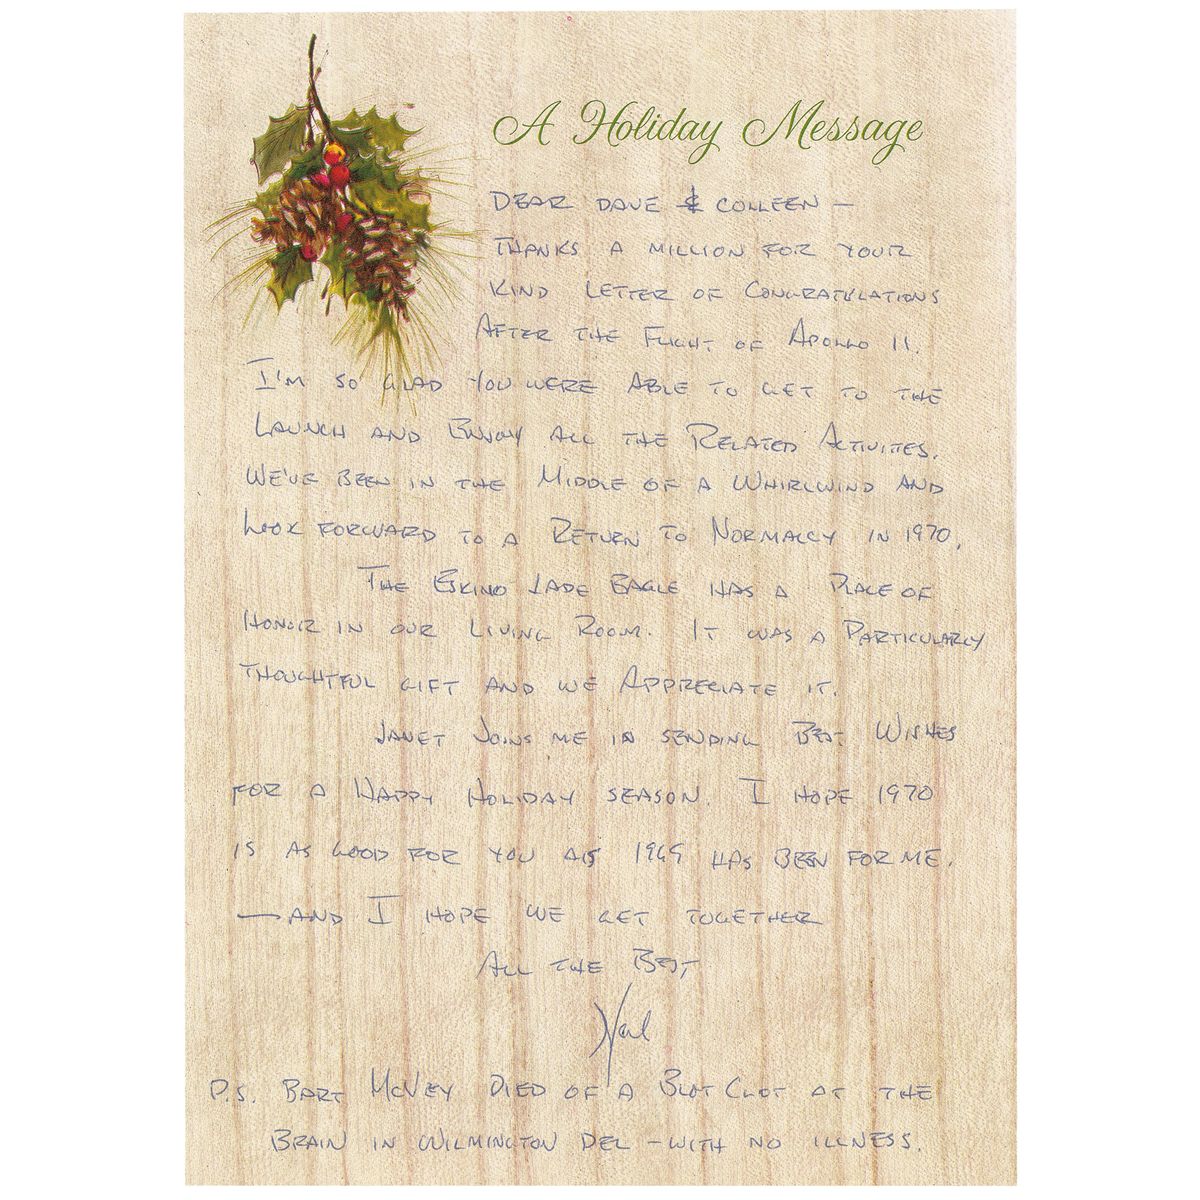 A Holiday Message
DEAR DAVE & COLLEEN —
THANKS A MILLION FOR YOUR
KIND LETTER OF CONGRATULATIONS
AFTER THE FLIGHT OF APOLLO 11.
I'M SO GLAD YOU WERE ABLE TO GET TO THE
LAUNCH AND ENJOY ALL THE RELATED ACTIVITIES.
WE'VE BEEN IN THE MIDDLE OF A WHIRLWIND AND
LOOK FORWARD TO A RETURN TO NORMALCY IN 1970.
THE ESKIMO JADE EAGLE HAS A PLACE OF
HONOR IN OUR LIVING ROOM. IT WAS A PARTICULARLY
THOUGHTFUL GIFT AND WE APPRECIATE IT.
JANET JOINS ME IN SENDING BEST WISHES
FOR A HAPPY HOLIDAY SEASON. I HOPE 1970
IS AS GOOD FOR YOU AS 1969 HAS BEEN FOR ME.
— AND I HOPE WE GET TOGETHER
ALL THE BEST
Neil
P.S. BART MCVEY DIED OF A BLOT CLOT AT THE
BRAIN IN WILMINGTON DEL — WITH NO ILLNESS.